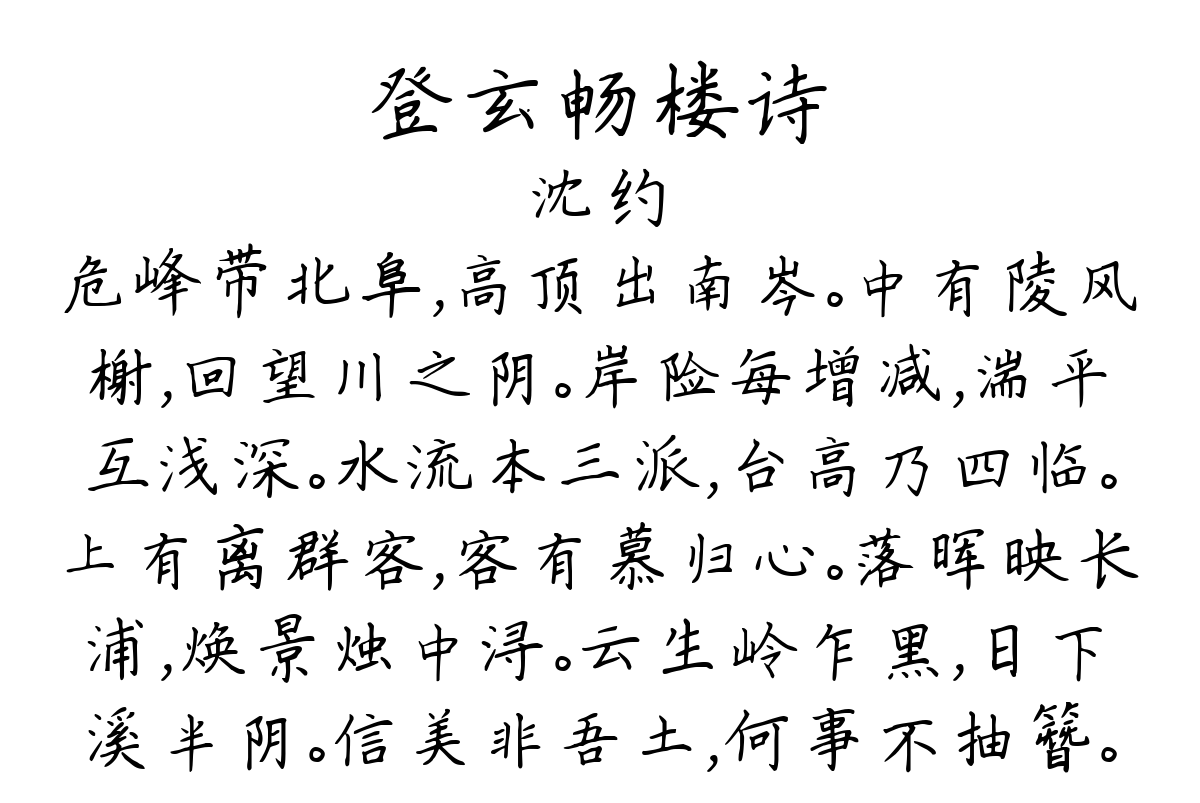 登玄畅楼诗
沈约
危峰带北阜,高顶出南岑。中有陵风
榭,回望川之阴。岸险每增减,湍平
互浅深。水流本三派,台高乃四临。
上有离群客,客有慕归心。落晖映长
浦,焕景烛中浔。云生岭乍黑,日下
溪半阴。信美非吾土,何事不抽簪。